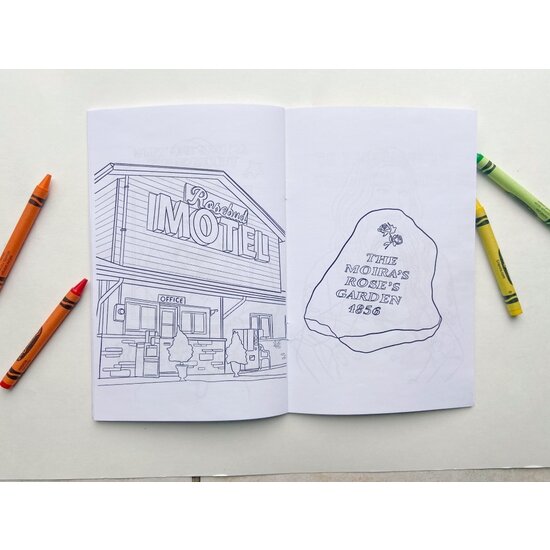 Rosebud
MOTEL
OFFICE
THE
MOIRA'S
ROSE'S
GARDEN
1856